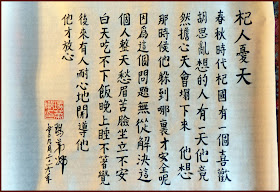 杞人憂天
春秋時代杞國有一個喜歡
胡思亂想的人有一天他竟
然擔心天會塌下來 他想
那時候他躲到哪裏才安全呢
因為這個問題無從解決這
個人整天愁眉苦臉坐立不安
白天吃不下飯晚上睡不著覺
後來有人耐心地開導他
他才放心